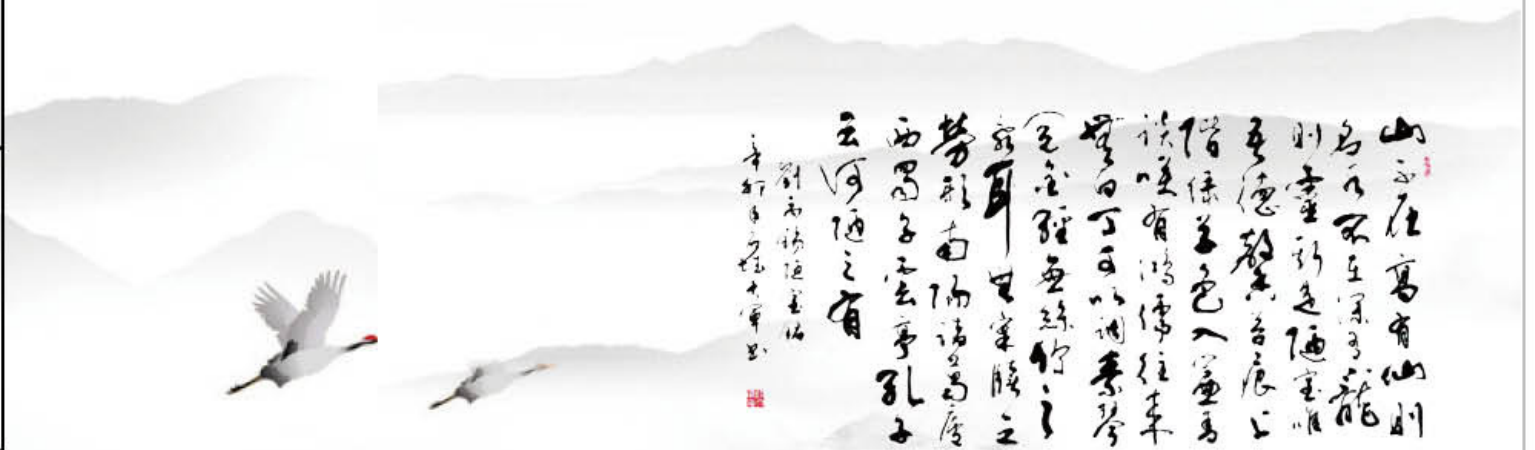 山不在高有仙則
名水不在深有龍
則靈斯是陋室唯
吾德馨苔痕上
階綠草色入簾青
談笑有鴻儒往來
無白丁可以調素琴
閱金經無絲竹之
亂耳無案牘之
勞形南陽諸葛廬
西蜀子雲亭孔子
云何陋之有
劉禹錫陋室銘
辛卯年大軍書